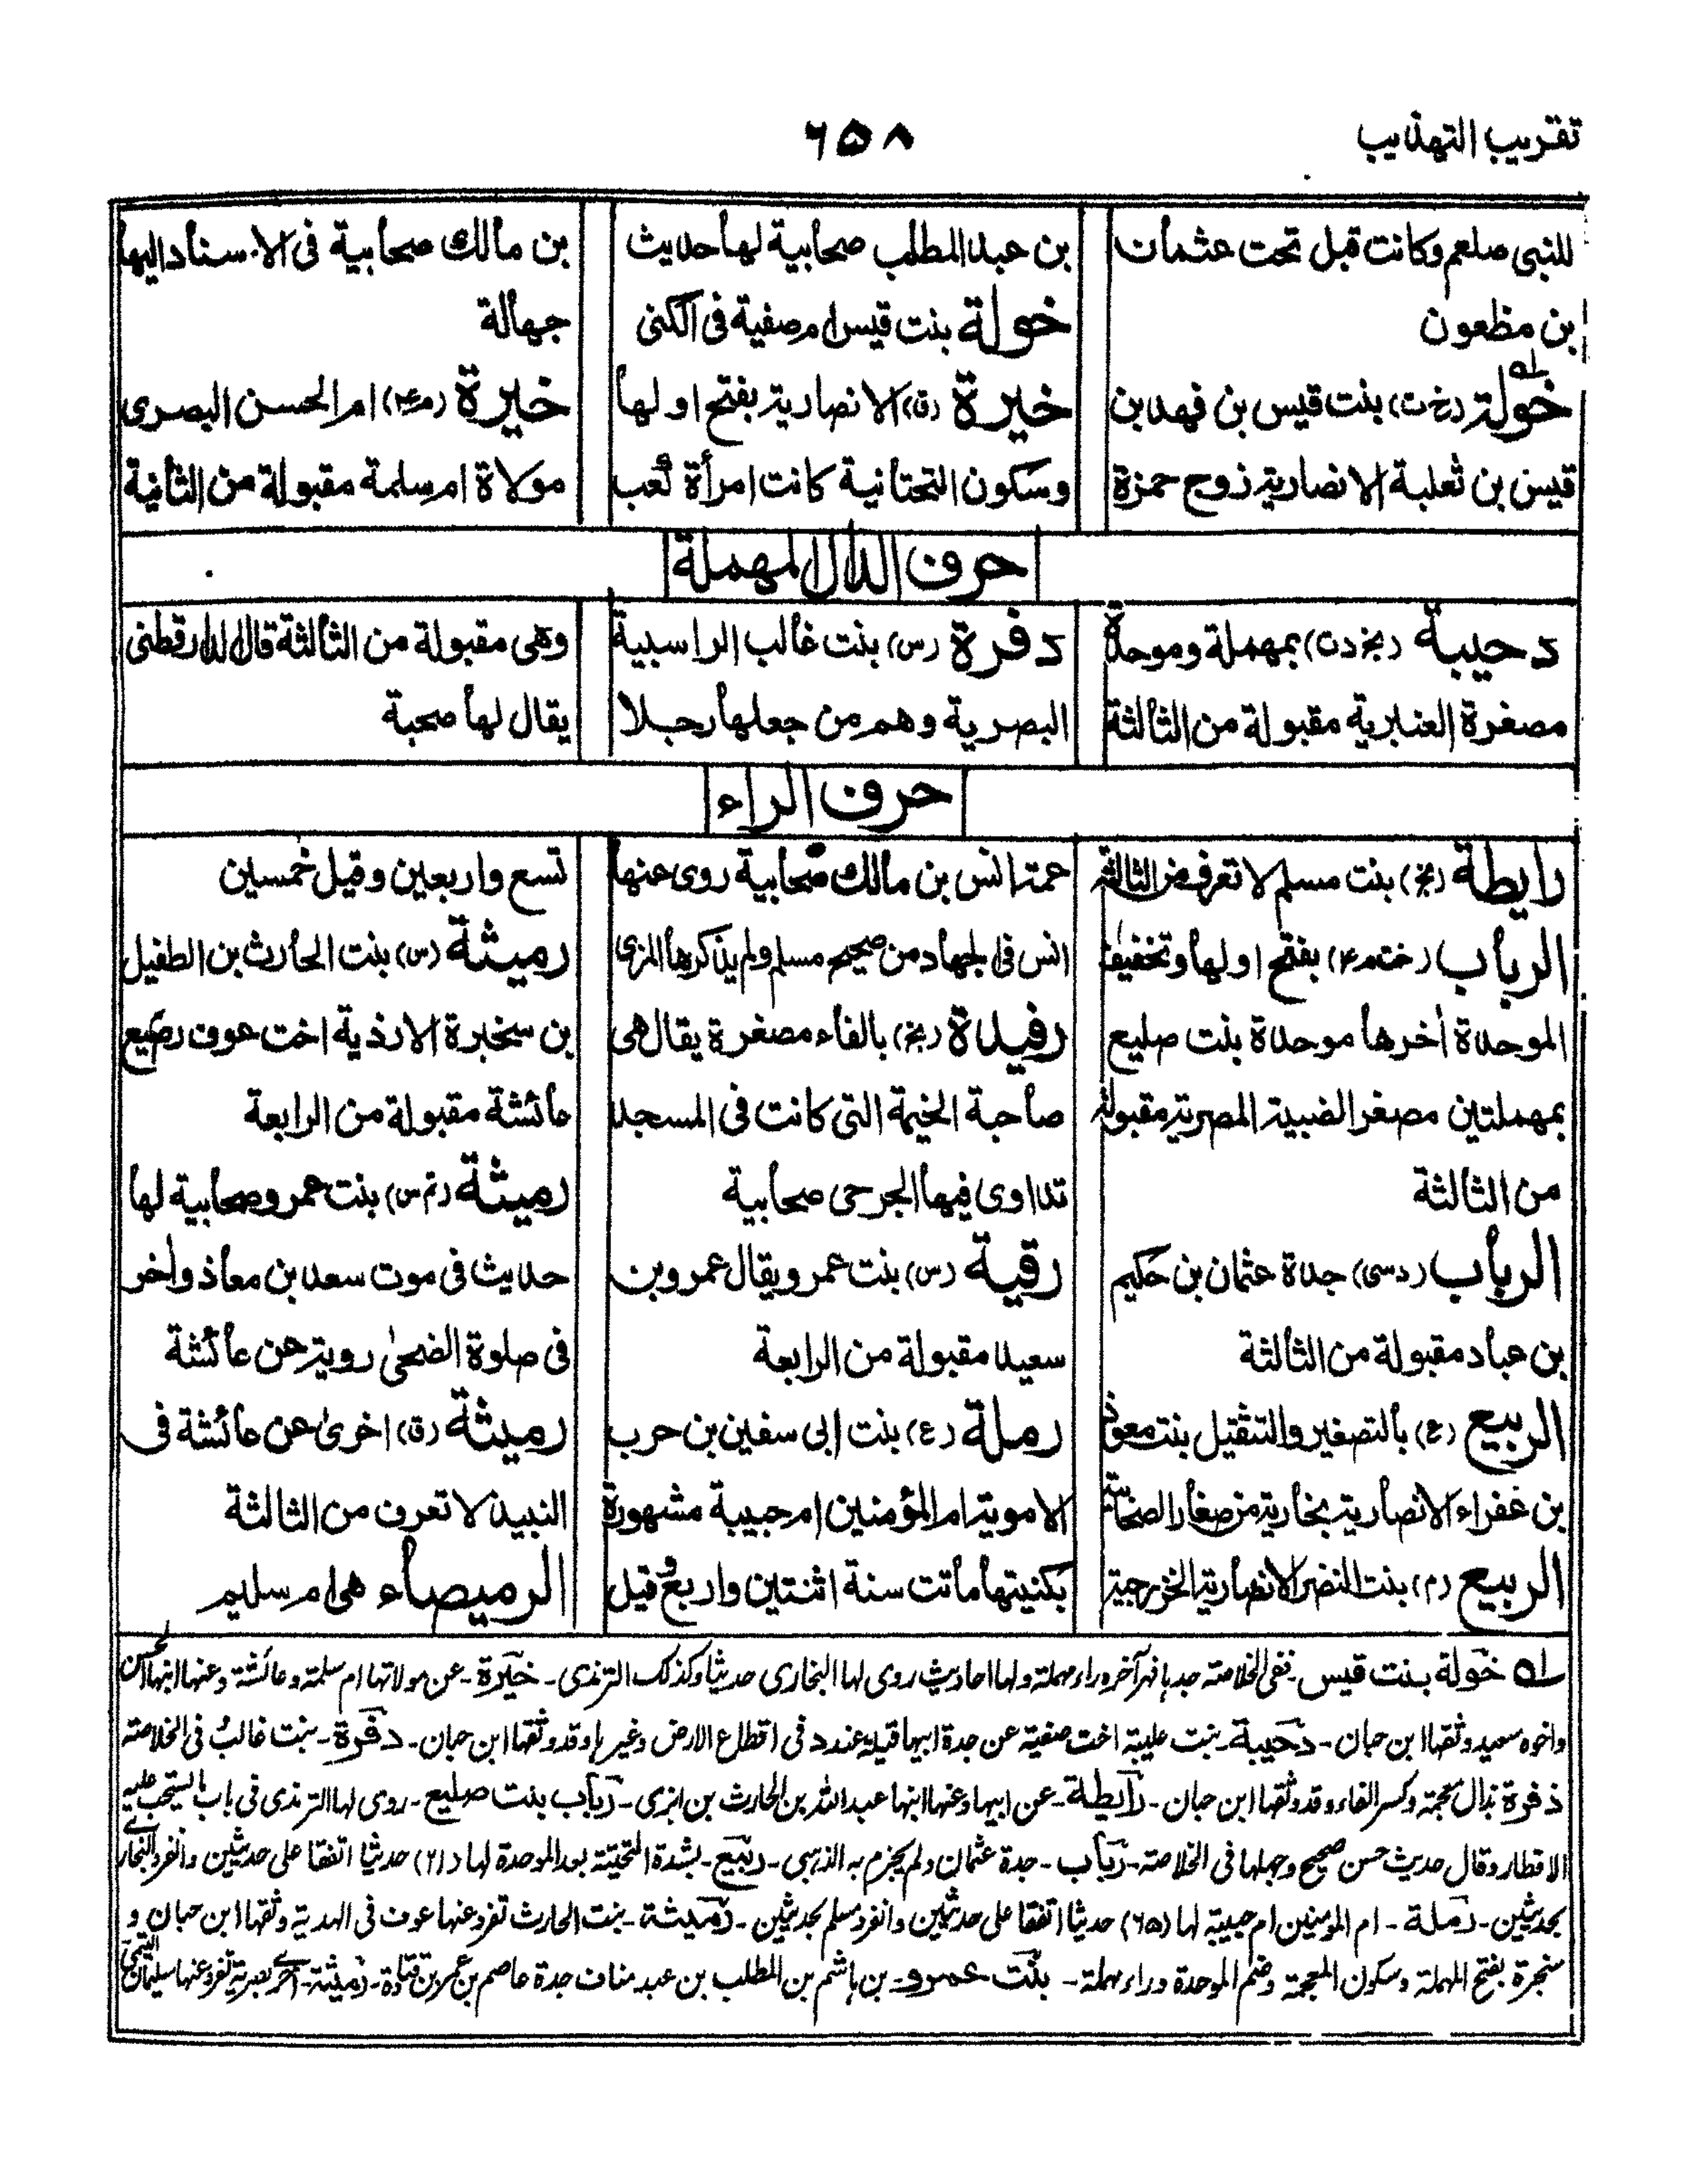 تقريب التهذيب
٦٥٨
للنبى صلعم وكانت قبل تحت عثمان
بن مظعون
خولة (خ ت) بنت قيس بن فهد بن
قيس بن ثعلبة الانصارية زوج حمزة
بن عبد المطلب صحابية لها حديث
خولة بنت قيس ام صفية فى الكنى
خيرة (ق) الانصارية بفتح اولها
وسكون التحتانية كانت امرأة كعب
بن مالك صحابية فى الاسناد اليها
جهالة
خيرة (م ۴) ام الحسن البصرى
مولاة ام سلمة مقبولة من الثانية
حرف الدال المهملة
دحيبة (بخ د ت) بمهملة وموحدة
مصغرة العنبرية مقبولة من الثالثة
دفرة (س) بنت غالب الراسبية
البصرية وهم من جعلها رجلا
وهى مقبولة من الثالثة قال الدارقطنى
يقال لها صحبة
حرف الراء
رايطة (بخ) بنت مسلم لا تعرف من الثالثة
الرباب (خت ۴) بفتح اولها وتخفيف
الموحدة أخرها موحدة بنت صليع
بمهملتين مصغر الضبية المصرية مقبولة
من الثالثة
الرباب (د سى) جدة عثمان بن حكيم
بن عباد مقبولة من الثالثة
الربيع (ع) بالتصغير والتثقيل بنت معوذ
بن عفراء الانصارية بخارية من صغار الصحابة
الربيع (م) بنت النضر الانصارية الخزرجية
عمة انس بن مالك صحابية روى عنها
انس فى الجهاد من صحيح مسلم ولم يذكرها المزى
رفيدة (بخ) بالفاء مصغرة يقال هى
صاحبة الخيمة التى كانت فى المسجد
تداوى فيها الجرحى صحابية
رقية (س) بنت عمر ويقال عمرو بن
سعيد مقبولة من الرابعة
رملة (ع) بنت ابى سفين بن حرب
الاموية ام المؤمنين ام حبيبة مشهورة
بكنيتها ماتت سنة اثنتين واربع وقيل
تسع واربعين وقيل خمسين
رميثة (س) بنت الحارث بن الطفيل
بن سخبرة الازدية اخت عوف رضيع
عائشة مقبولة من الرابعة
رميثة (تم س) بنت عمرو صحابية لها
حديث فى موت سعد بن معاذ وأخر
فى صلوة الضحى روية عن عائشة
رميثة (ق) اخرى عن عائشة فى
النبيذ لا تعرف من الثالثة
الرميصاء هى ام سليم
خولة بنت قيس ـ نفى الخلاصة جدبا نهر آخره راء مهملة ولها احاديث روى لها البخارى حديثا وكذلك الترمذى ـ خيرة ـ عن مولاتها ام سلمة وعائشة وعنها ابنها الحسن
واخوه سعيد وثقها ابن حبان ـ دحيبة ـ بنت عليبة اخت صفية عن جدة ابيها قيلة عند د فى اقطاع الارض وغيرها وقد وثقها ابن حبان ـ دفرة ـ بنت غالب فى الخلاصة
ذفرة بذال معجمة وكسر الفاء وقد وثقها ابن حبان ـ رايطة ـ عن ابيها وعنها ابنها عبد الله بن الحارث بن ابزى ـ رباب بنت صليع ـ روى لها الترمذى فى باب ما يستحب عليه
الافطار وقال حديث حسن صحيح وجهلها فى الخلاصة ـ رباب ـ جدة عثمان ولم يجزم به الذهبى ـ ربيع ـ بشدة التحتية بعد الموحدة لها (٢١) حديثا اتفقا على حديثين وانفرد البخارى
بحديثين ـ رملة ـ ام المومنين ام حبيبة لها (٦٥) حديثا اتفقا على حديثين وانفرد مسلم بحديثين ـ رميثة ـ بنت الحارث تفرد عنها عوف فى الهدية وثقها ابن حبان و
سنجرة بفتح المهملة وسكون المعجمة وضم الموحدة وراء مهملة ـ بنت عمرو ـ بن هاشم بن المطلب بن عبد مناف جدة عاصم بن عمر بن قتادة ـ رميثة ـ اخرى بصرية تفرد عنها سليمان التيمى